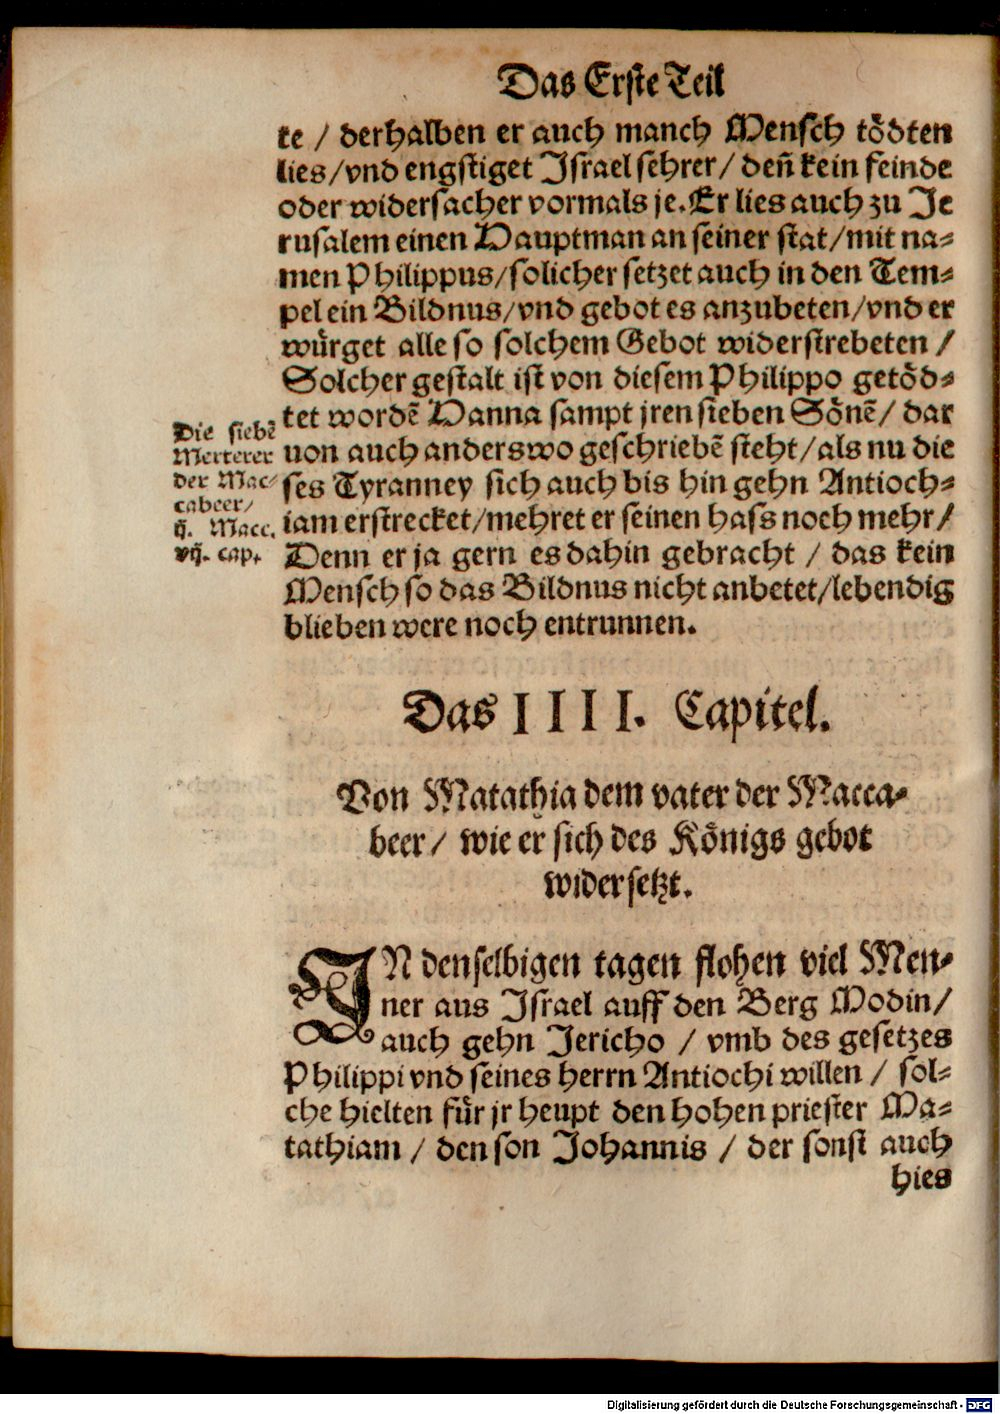 Das Erste Teil
te / derhalben er auch manch Mensch tödten
lies / vnd engstiget Israel sehrer / deñ kein feinde
oder widersacher vormals je. Er lies auch zu Je
rusalem einen Hauptman an seiner stat / mit na⸗
men Philippus / solicher setzet auch in den Tem⸗
pel ein Bildnus / vnd gebot es anzubeten / vnd er
würget alle so solchem Gebot widerstrebeten /
Solcher gestalt ist von diesem Philippo getöd⸗
tet wordẽ Hanna sampt jren sieben Sönẽ / dar
uon auch anderswo geschriebẽ steht / als nu die
ses Tyranney sich auch bis hin gehn Antioch⸗
iam erstrecket / mehret er seinen hass noch mehr /
Denn er ja gern es dahin gebracht / das kein
Mensch so das Bildnus nicht anbetet / lebendig
blieben were noch entrunnen.
Die siebẽ
Merterer
der Mac⸗
cabeer /
ij. Macc.
vij. cap.
Das IIII. Capitel.
Von Matathia dem vater der Macca⸗
beer / wie er sich des Königs gebot
widersetzt.
IN denselbigen tagen flohen viel Men⸗
ner aus Israel auff den Berg Modin /
auch gehn Jericho / vmb des gesetzes
Philippi vnd seines herrn Antiochi willen / sol⸗
che hielten für jr heupt den hohen priester Ma⸗
tathiam / den son Johannis / der sonst auch
hies
Digitalisierung gefördert durch die Deutsche Forschungsgemeinschaft - DFG